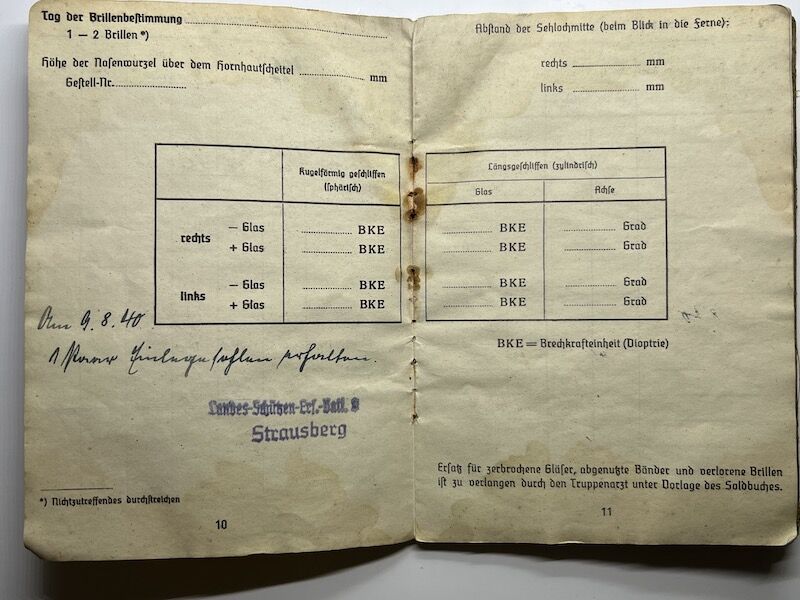 Tag der Brillenbestimmung
1 – 2 Brillen *)
Höhe der Nasenwurzel über dem Hornhautscheitel mm
Gestell-Nr.
Kugelförmig geschliffen
(sphärisch)
rechts
– Glas BKE
+ Glas BKE
links
– Glas BKE
+ Glas BKE
Am 9. 8. 40.
1 Paar Einlegesohlen erhalten.
Landes-Schützen-Ers.-Batl.
Strausberg
*) Nichtzutreffendes durchstreichen
10
Abstand der Sehlochmitte (beim Blick in die Ferne):
rechts mm
links mm
Längsgeschliffen (zylindrisch)
Glas Achse
BKE Grad
BKE Grad
BKE Grad
BKE Grad
BKE = Brechkrafteinheit (Dioptrie)
Ersatz für zerbrochene Gläser, abgenutzte Bänder und verlorene Brillen
ist zu verlangen durch den Truppenarzt unter Vorlage des Soldbuches.
11